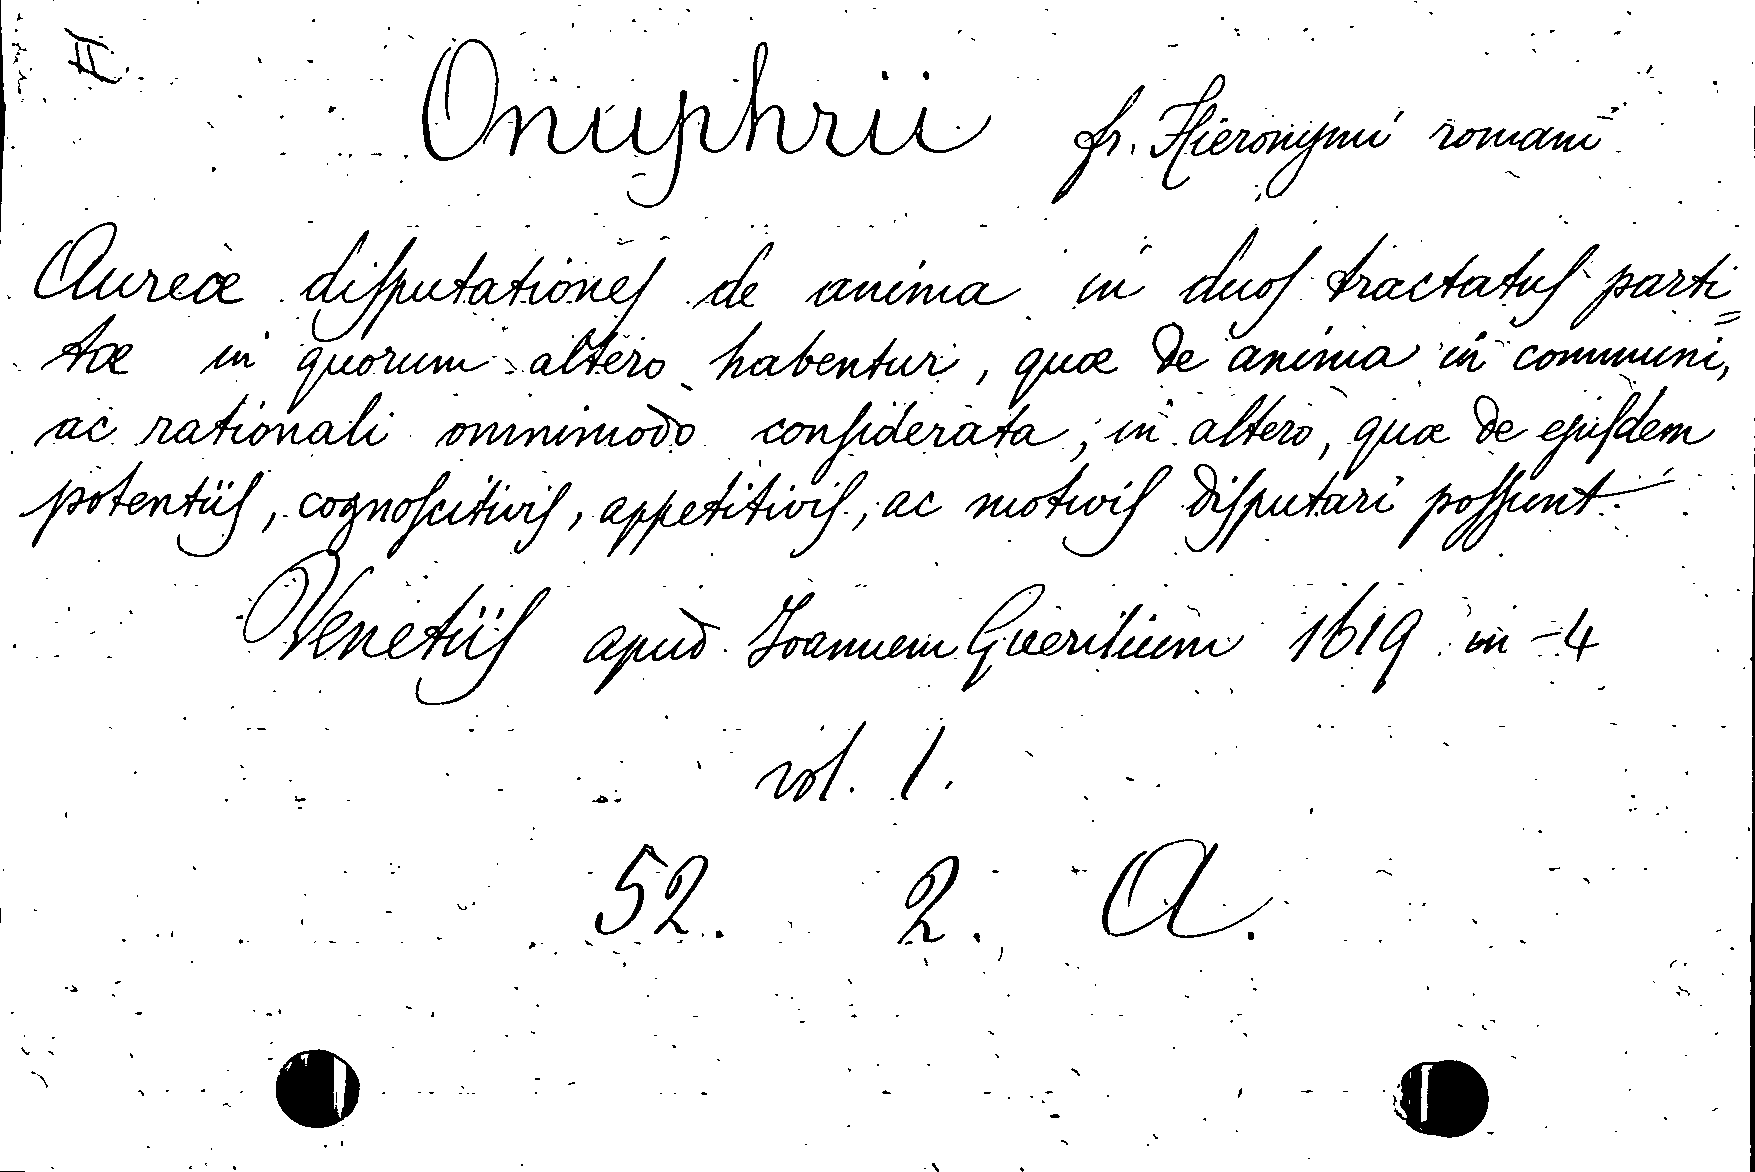 II
Onuphrii fr. Hieronymi romani
Aureæ disputationes de anima in duos tractatus parti=
tæ in quorum altero habentur, quæ de anima in communi,
ac rationali omnimodo considerata; in altero, quæ de ejusdem
potentiis, cognoscitivis, appetitivis, ac motivis disputari possunt.
Venetiis apud Ioannem Guerilium 1619 in-4
vol. 1.
52. 2. A.